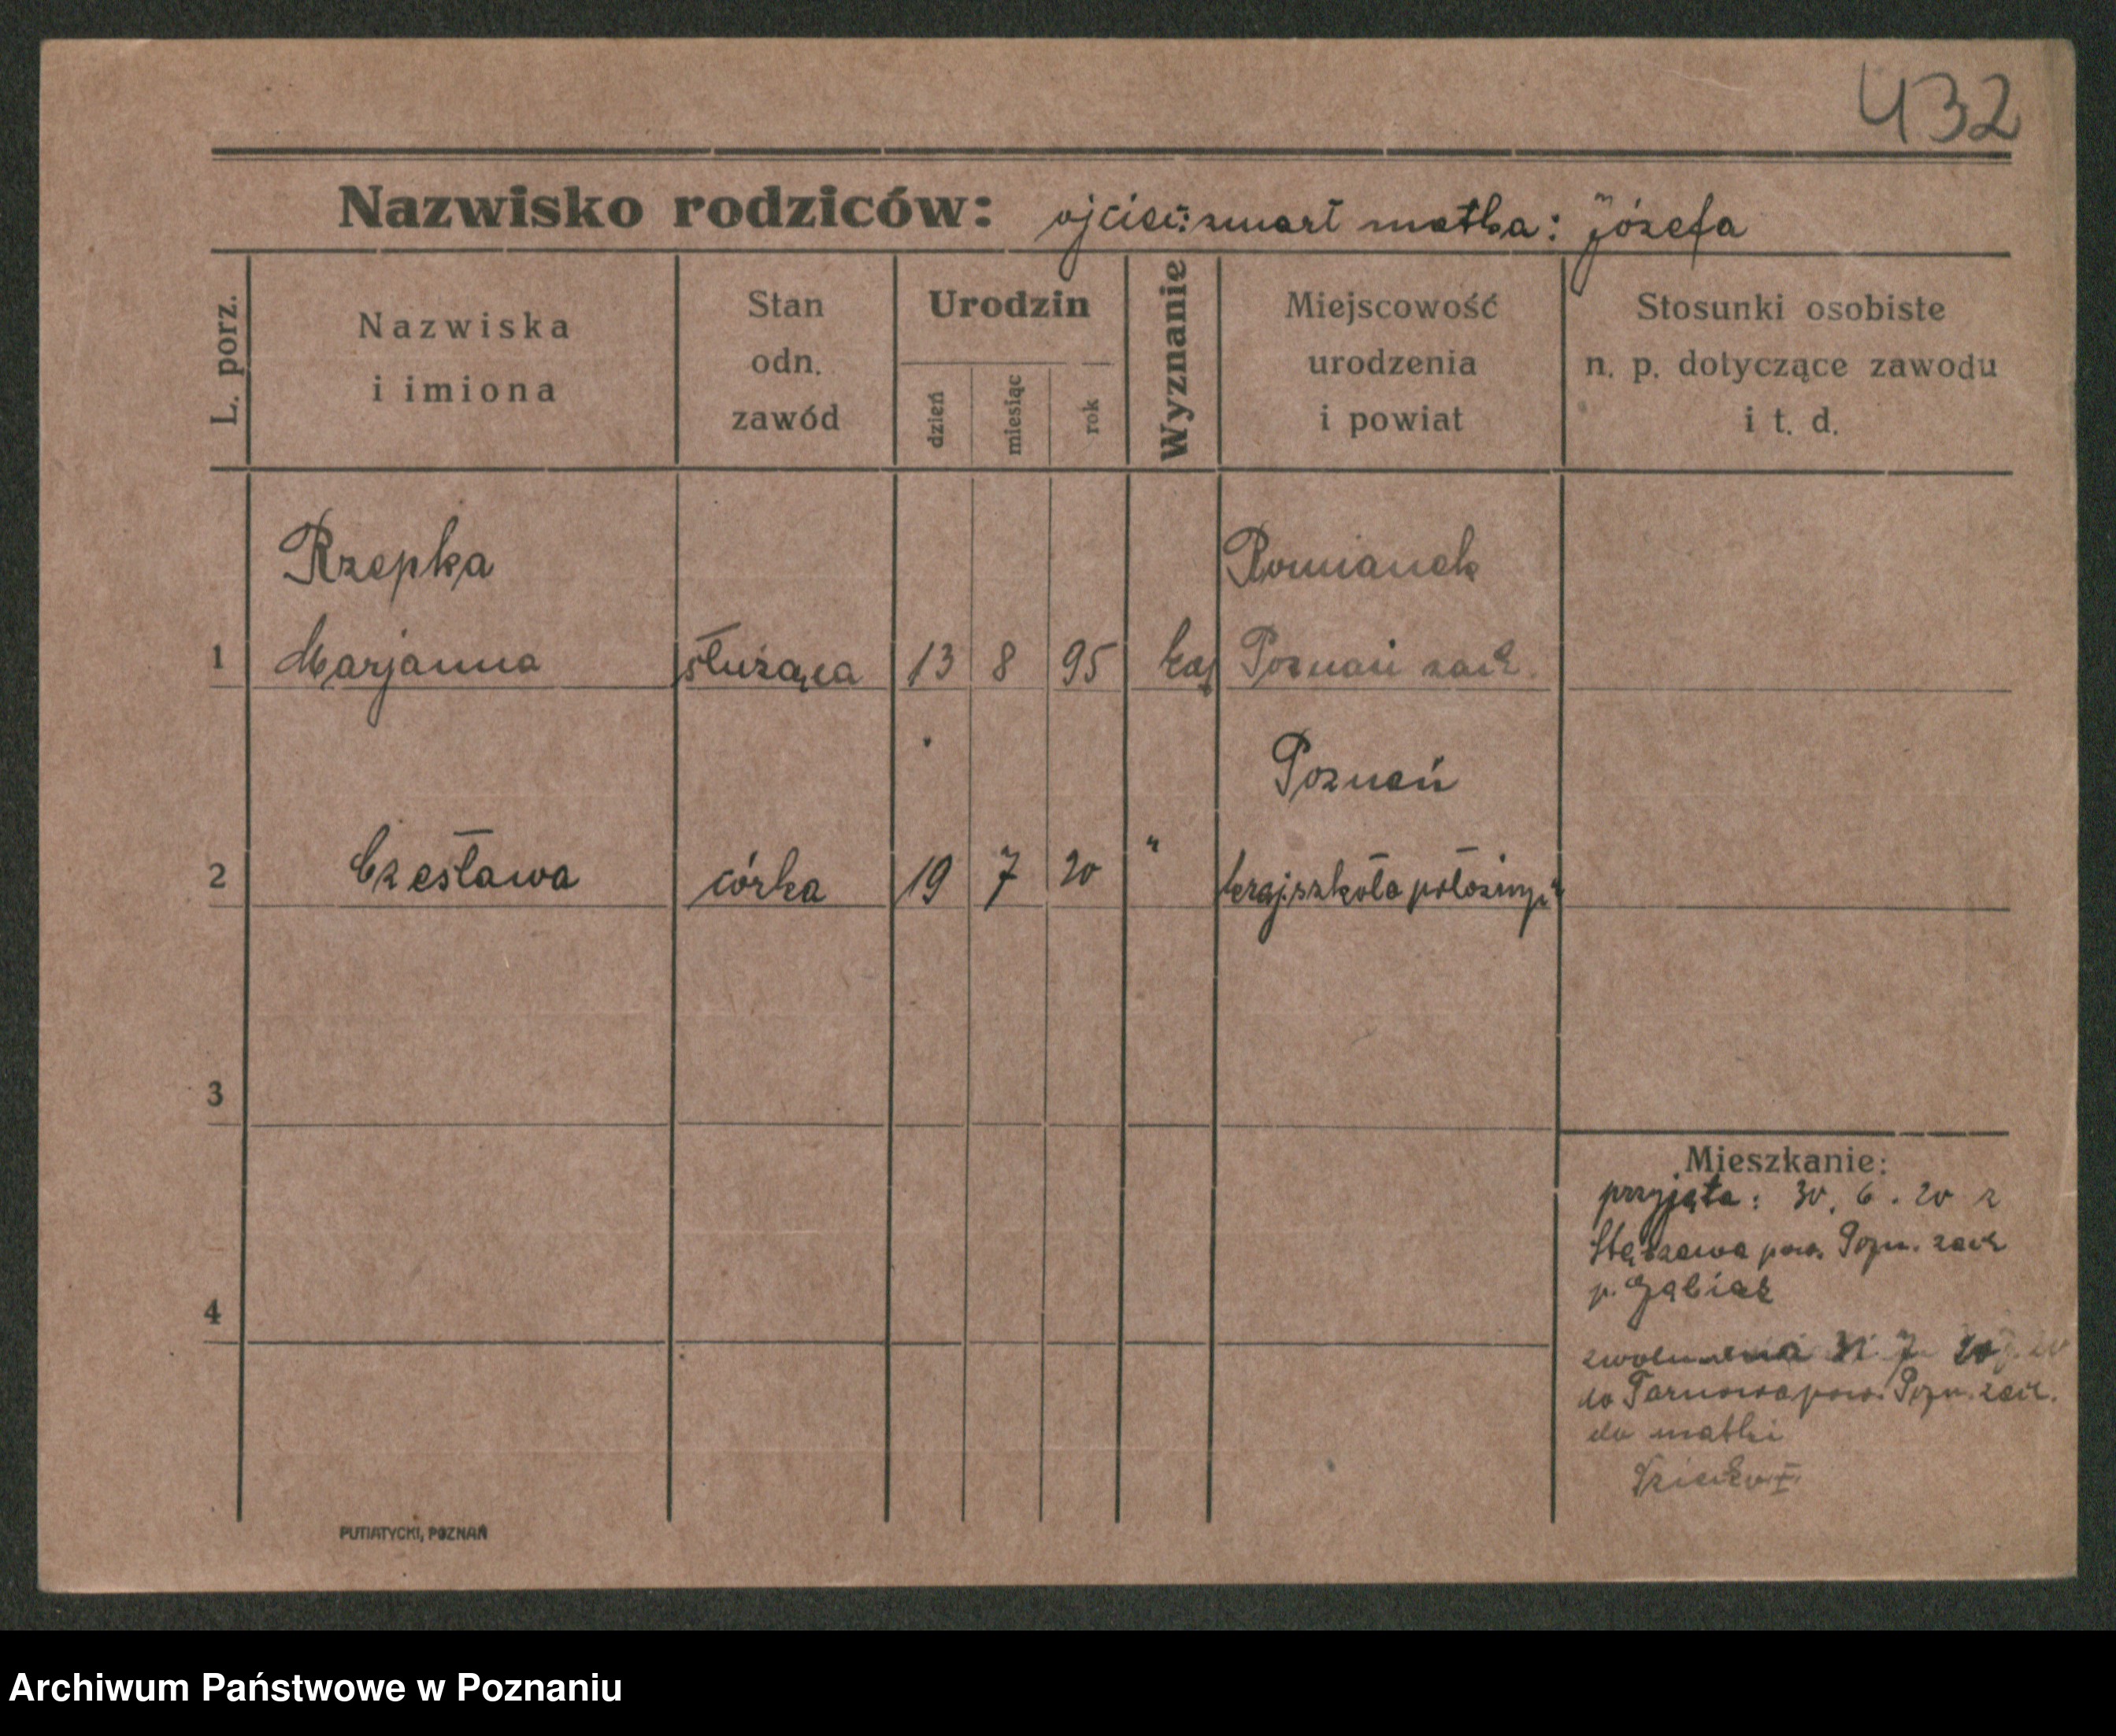 432
Nazwisko rodziców: ojciec: zmarł matka: Józefa
L. porz.
Nazwiska
i imiona
Stan
odn.
zawód
Urodzin
dzień
miesiąc
rok
Wyznanie
Miejscowość
urodzenia
i powiat
Stosunki osobiste
n. p. dotyczące zawodu
i t. d.
Rzepka
1 Marjanna służąca 13 8 95 kat Poznań zach.
Poznań
2 Czesława córka 19 7 20 " kraj. szkoła położnych
3
Mieszkanie:
przyjęta: 30. 6. 20 z
pow. Pozn. zach
4
p.
31 7 20
do Tarnowa pow. Pozn. zach.
do matki
PUTIATYCKI, POZNAŃ
Archiwum Państwowe w Poznaniu